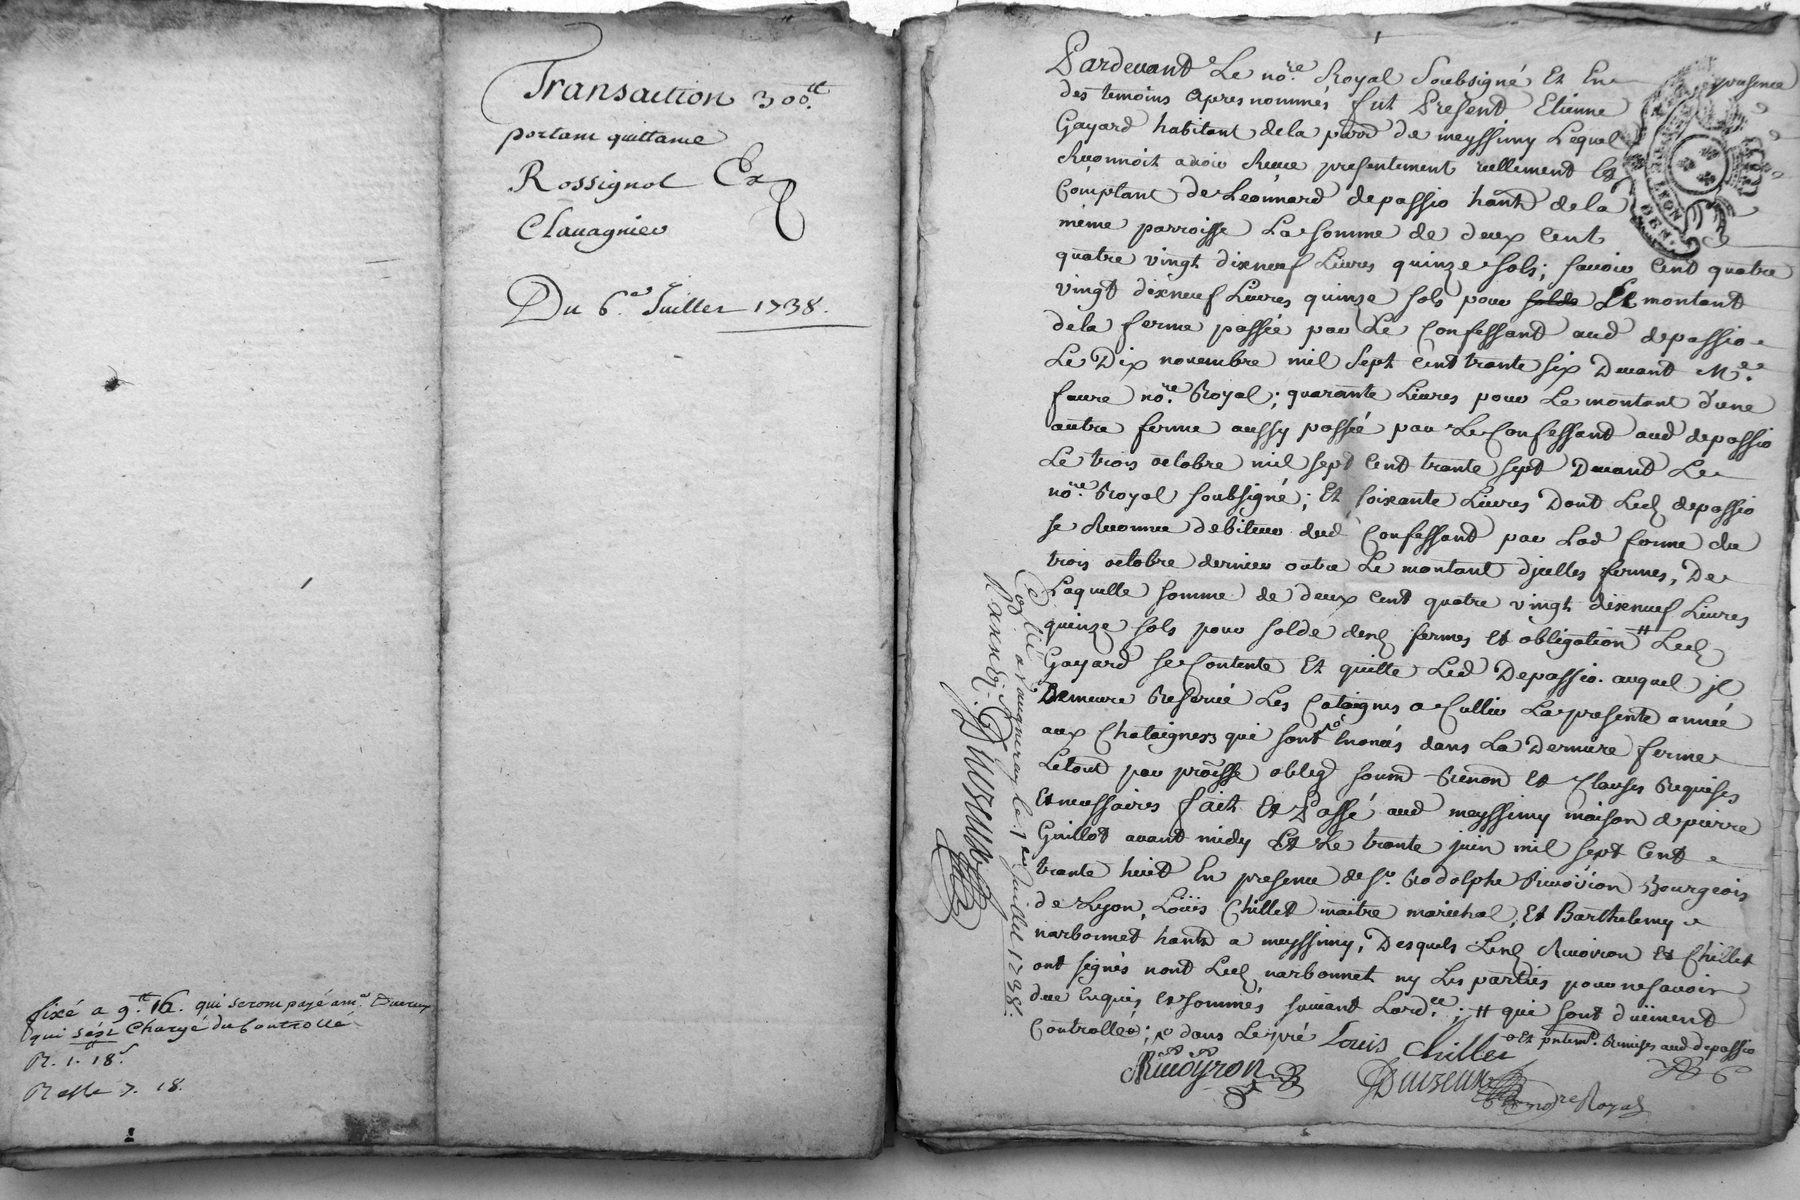 Transaction 300.tt
portant quittance
Rossignol Et
Clavagnier
Du 6.e Juillet 1738.
fixé a 9.tt 16. qui seront payé a m.e Duvreux
qui sest chargé du controlle
R. 1.tt 18.s
Reste 7. 18.
Pardevant Le no.re Royal Soubsigné Et En presence
des temoins apres nommés fut Present Etienne
Gayard habitant dela parr de meyssimy Lequel
Reconnoit avoir Receu presentement reellement Et
Comptant de Leonnard depassio hant dela
méme parroisse La somme de deux Cent
quatre vingt dixneuf Livres quinze sols; savoir Cent quatre
vingt dixneuf Livres quinze sols pour solde Le montant
dela ferme passée par Le Confessant aud depassio
Le Dix novembre mil Sept Cent trante six Devant M.e
faure no.re Royal; quarante Livres pour Le montant d'une
autre ferme aussy passée par Le Confessant aud depassio
Le trois octobre mil sept Cent trante sept Devant Le
no.re Royal soubsigné; Et soixante Livres Dont Led depassio
se Reconnu debiteur dud Confessant par Lad ferme du
trois octobre dernier outre Le montant d'jcelles fermes, De
Laquelle somme de deux Cent quatre vingt dixneuf Livres
quinze sols pour solde desd fermes Et obligation # Led
Gayard se Contente Et quitte Led Depassio. auquel jl
Demeure Reservé Les Cataignes a Cullir La presente année
aux Chataigners qui sont Enoncés dans La Derniere ferme
Letout par proësse obligd soumd Renond Et Clauses Requises
Et necessaires fait Et Passé aud meyssimy maison de pierre
Guillot avant midy Et Le trante juin mil sept Cent
trante huit En presence de Sr Rodolphe Rivoiron Bourgeois
de Lyon, Loüis Chillet maitre marechal, Et Barthelemy
narbonnet hants a meyssimy, Desquels Lesd Rivoiron Et Chillet
ont signés nont Led narbonnet ny Les parties pour ne savoir
due Enquis Et sommés suivant Lord.ce; # qui sont duëment
Controlleé; dans Le pré Et pntem.t Remises aud depassio
Louis Chillet
Rivoyron
Duvreux
no.re Royal
Con.lé a Vaugneray le 1er Juillet 1738.
Duvreux